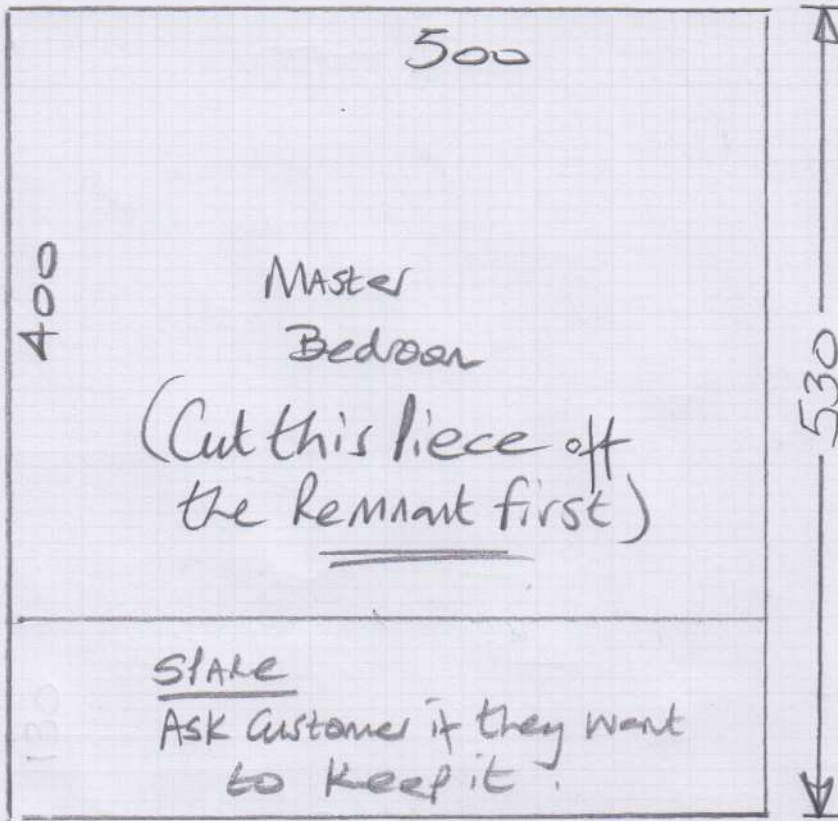 500
400
530
Master
Bedroom
(Cut this Piece off
the Remnant first)
SPARE
130
Ask Customer if they want
to keep it.